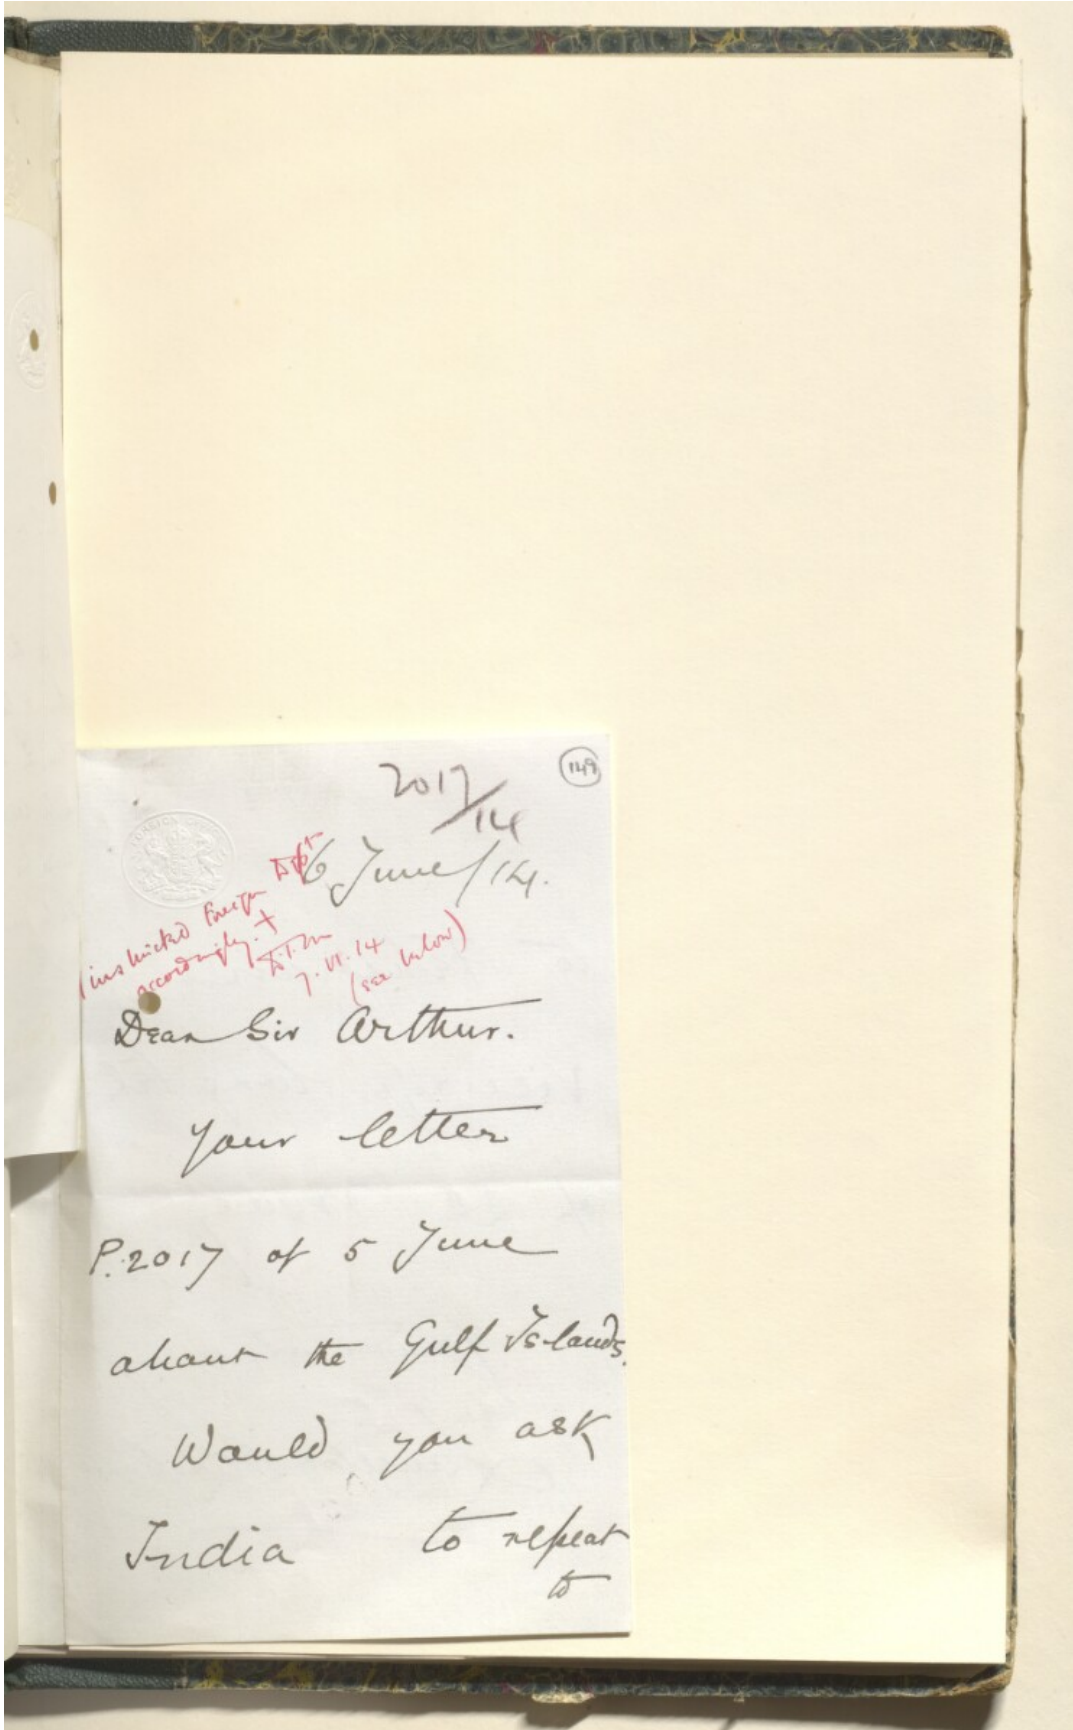 149
2017
/14
6 June/14.
Instructed Foreign Dept
accordingly. +
7.VI.14
(see below)
Dear Sir Arthur.
Your letter
P.2017 of 5 June
about the Gulf Islands.
Would you ask
India to repeat
to